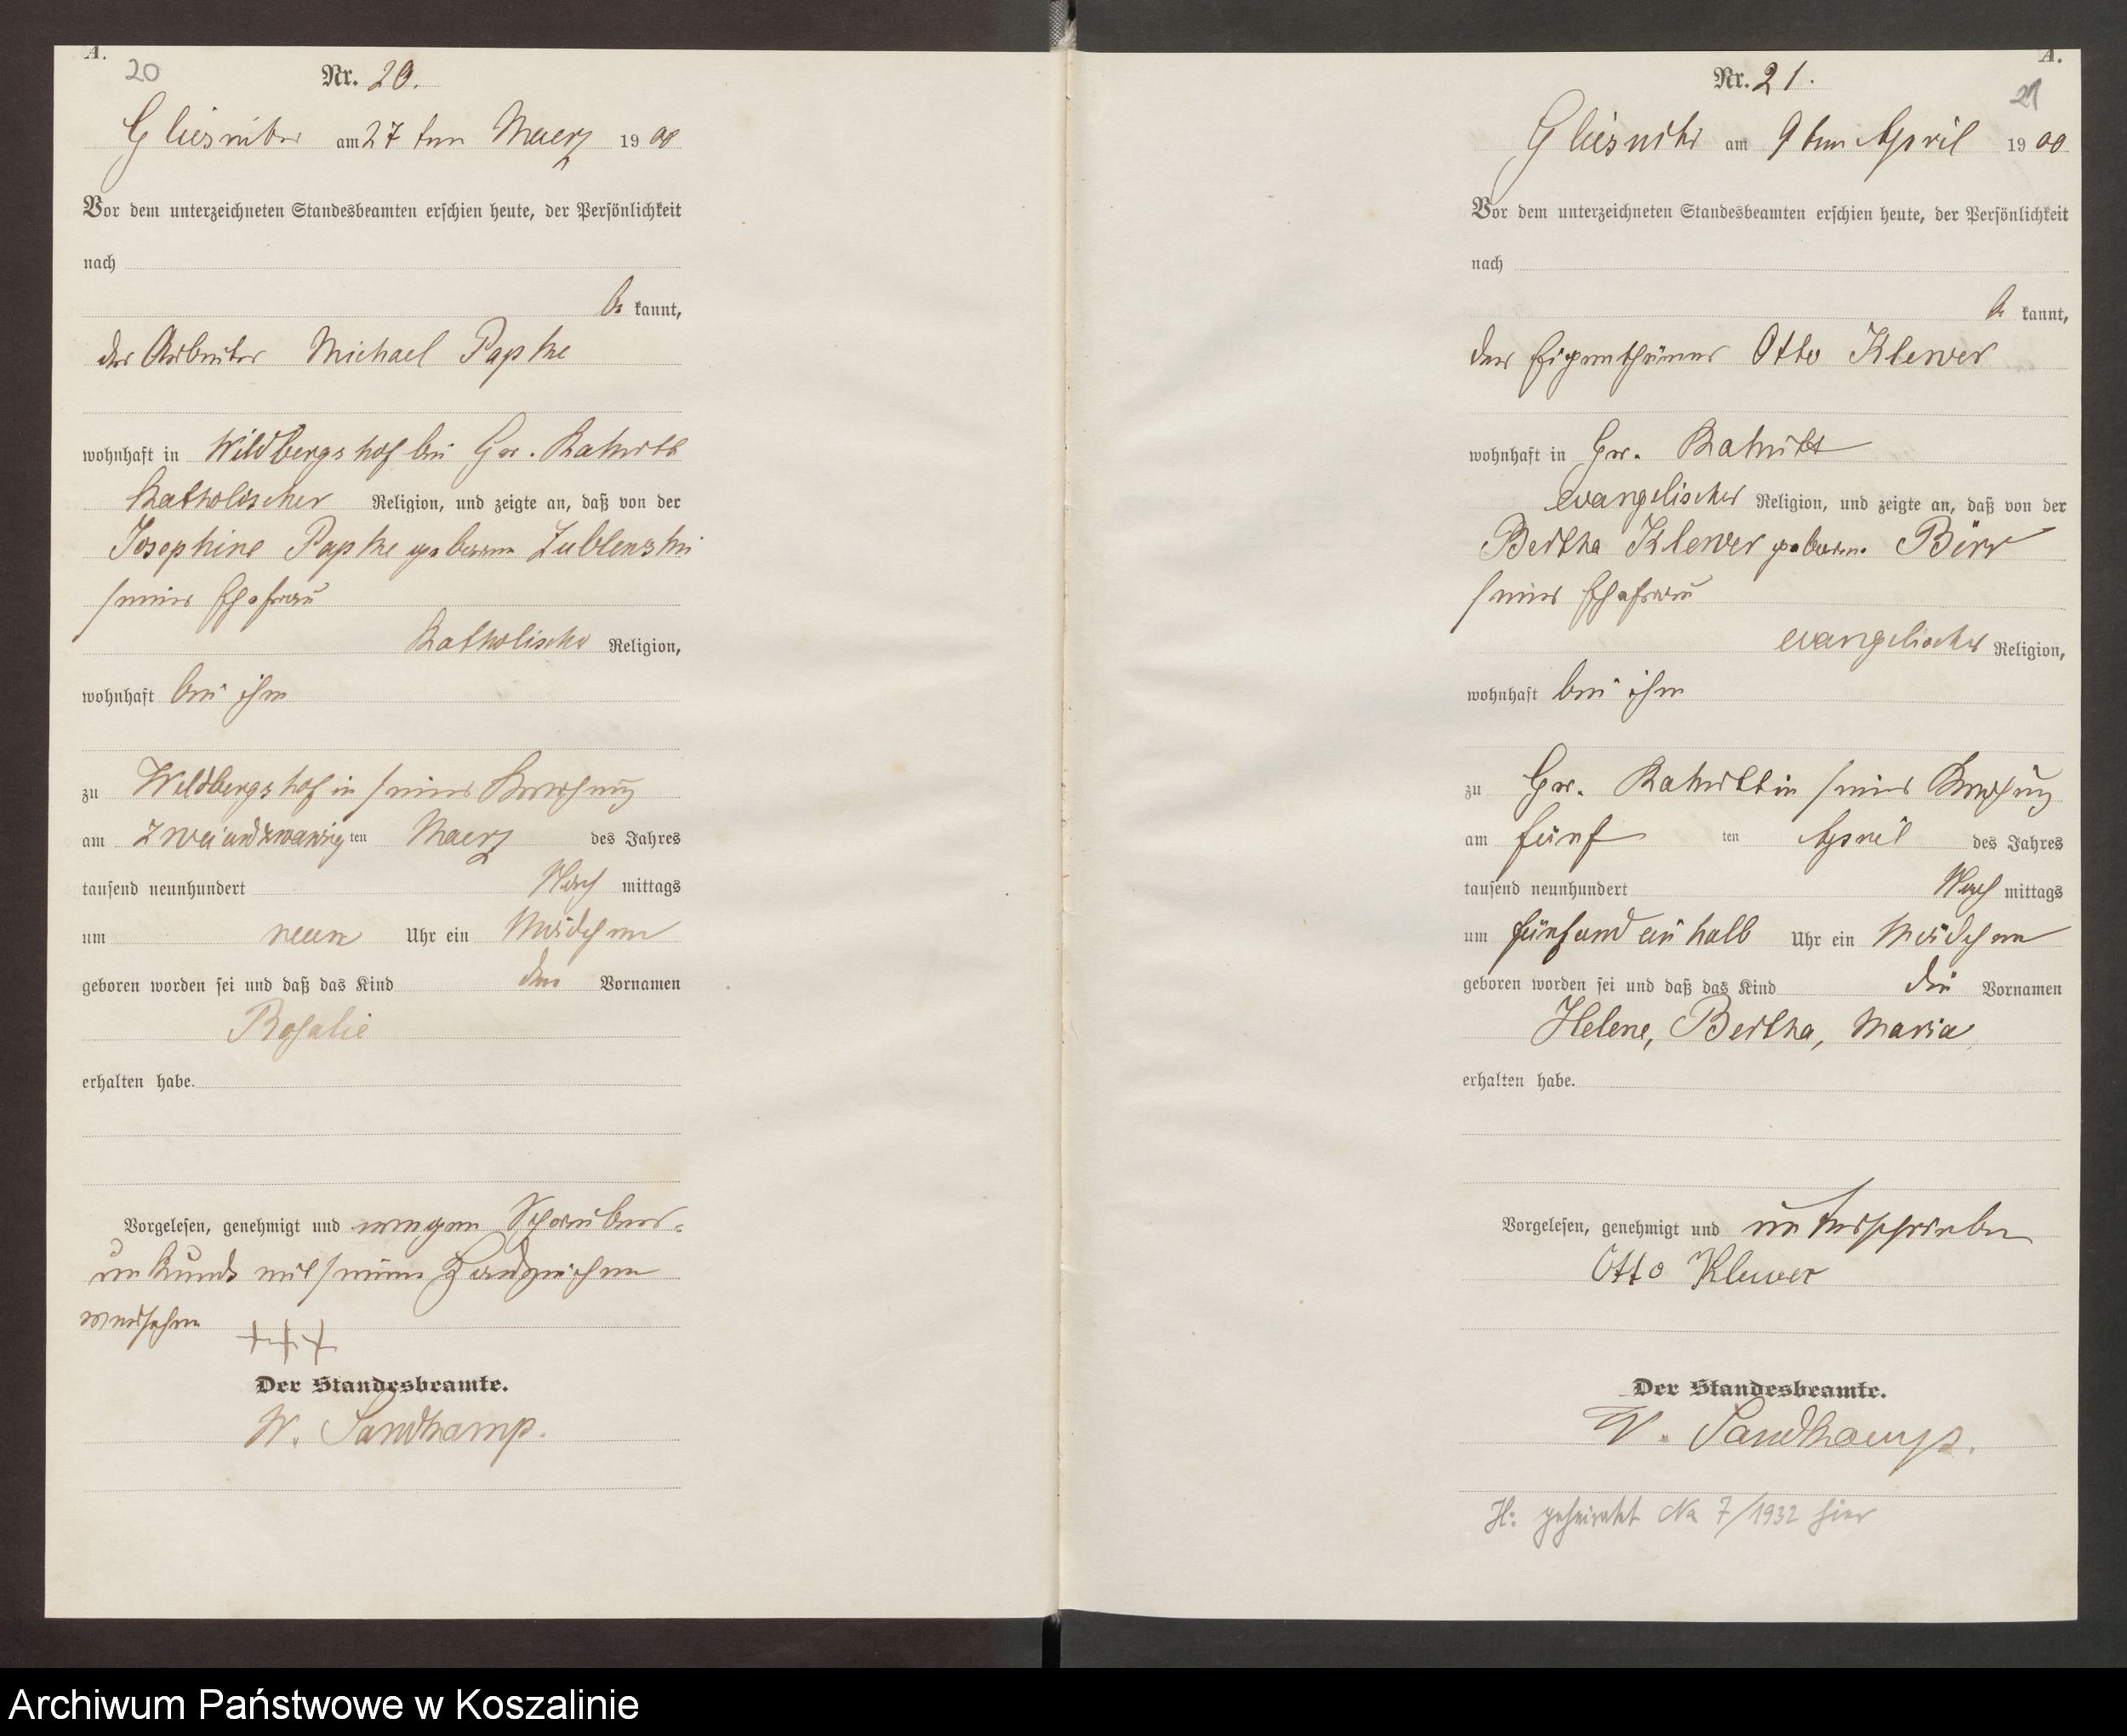 A.
20
Nr. 20.
Gliesnitz am 27ten Maerz 1900
Vor dem unterzeichneten Standesbeamten erschien heute, der Persönlichkeit
nach
be kannt,
der Arbeiter Michael Papke
wohnhaft in Wildbergshof bei Gr.
Katholischer Religion, und zeigte an, daß von der
Josephine Papke geborenen
seiner Ehefrau
Katholischer Religion,
wohnhaft bei ihm
zu Wildbergshof in seiner Behausung
am zweiundzwanzig ten Maerz des Jahres
tausend neunhundert Nach mittags
um neun Uhr ein Mädchen
geboren worden sei und daß das Kind den Vornamen
Rosalie
erhalten habe.
Vorgelesen, genehmigt und wegen Schreibens-
unkunde mit seinem Handzeichen
versehen
+++
Der Standesbeamte.
W. Sandkamp.
A.
21
Nr. 21.
Gliesnitz am 9ten April 1900
Vor dem unterzeichneten Standesbeamten erschien heute, der Persönlichkeit
nach
be kannt,
der Eigenthümer Otto Klewer
wohnhaft in Gr.
evangelischer Religion, und zeigte an, daß von der
Bertha Klewer geboren.
seiner Ehefrau
evangelischer Religion,
wohnhaft bei ihm
zu Gr. in seiner Behausung
am fünf ten April des Jahres
tausend neunhundert Nach mittags
um fünfundeinhalb Uhr ein Mädchen
geboren worden sei und daß das Kind die Vornamen
Helene, Bertha, Maria
erhalten habe.
Vorgelesen, genehmigt und unterschrieben
Otto Klewer
Der Standesbeamte.
W. Sandkamp.
H: geheiratet No 7/1932 hier
Archiwum Państwowe w Koszalinie